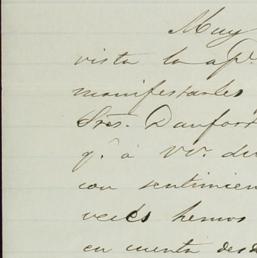 Muy
vista la ap.
manifestarles
Sres. Danfor
q.e á VV. de
con sentimien
veces hemos
en cuenta des